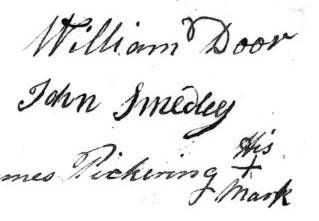 William Door
John Smedley
mes Pickering His
+
Mark